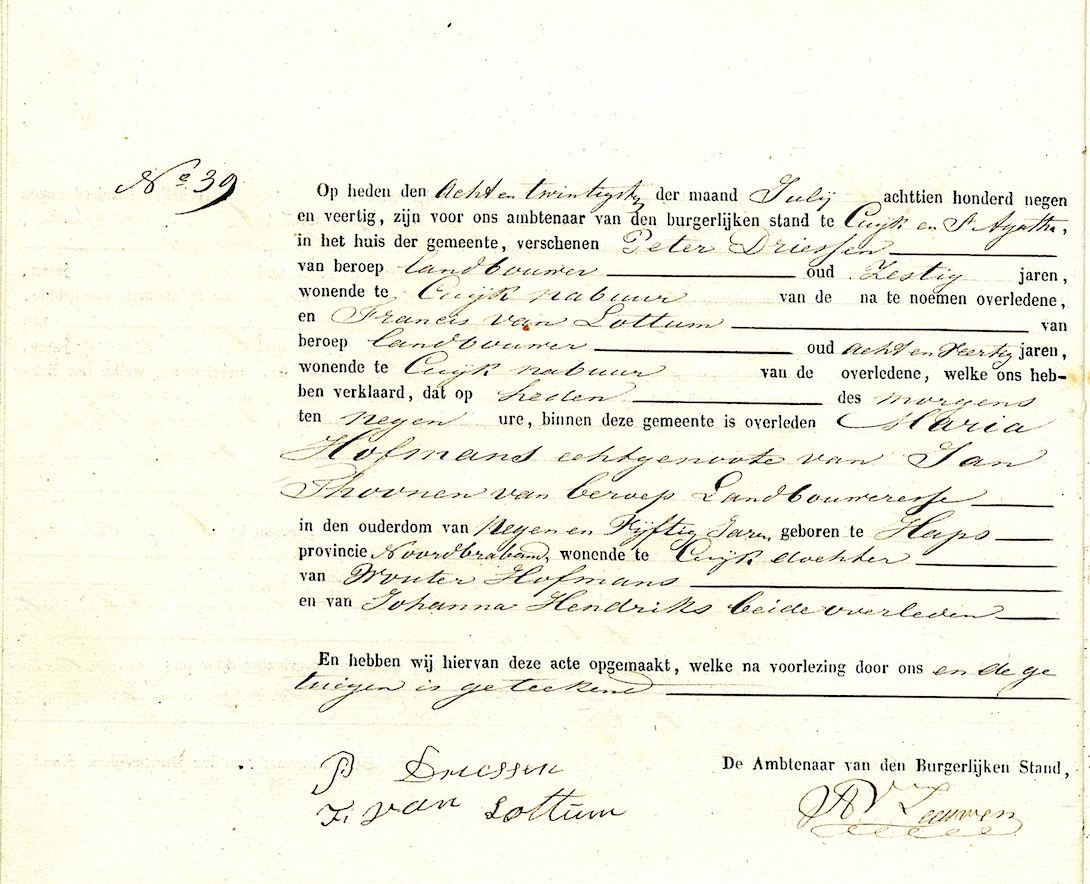 No 39
Op heden den Acht en twintigste der maand Julij achttien honderd negen
en veertig, zijn voor ons ambtenaar van den burgerlijken stand te Cuijk en St Agatha,
in het huis der gemeente, verschenen Peter Driessen
van beroep landbouwer oud Zestig jaren,
wonende te Cuijk nabuur van de na te noemen overledene,
en Francis van Lottum van
beroep landbouwer oud acht en Veertig jaren,
wonende te Cuijk nabuur van de overledene, welke ons heb-
ben verklaard, dat op heden des morgens
ten negen ure, binnen deze gemeente is overleden Maria
Hofmans echtgenoote van Jan
Thoonen van beroep Landbouweresse
in den ouderdom van Negen en Vijftig Jaren, geboren te Haps
provincie Noordbraband, wonende te Cuijk dochter
van Wouter Hofmans
en van Johanna Hendriks beide overleden
En hebben wij hiervan deze acte opgemaakt, welke na voorlezing door ons en de ge
tuigen is geteekend
P Driessen
F. van Lottum
De Ambtenaar van den Burgerlijken Stand,
Leeuwen